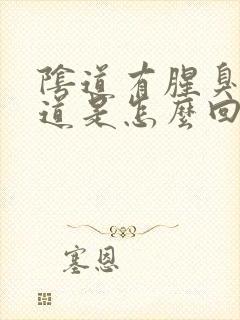 陰道有腥臭
道是怎麼回
塞恩